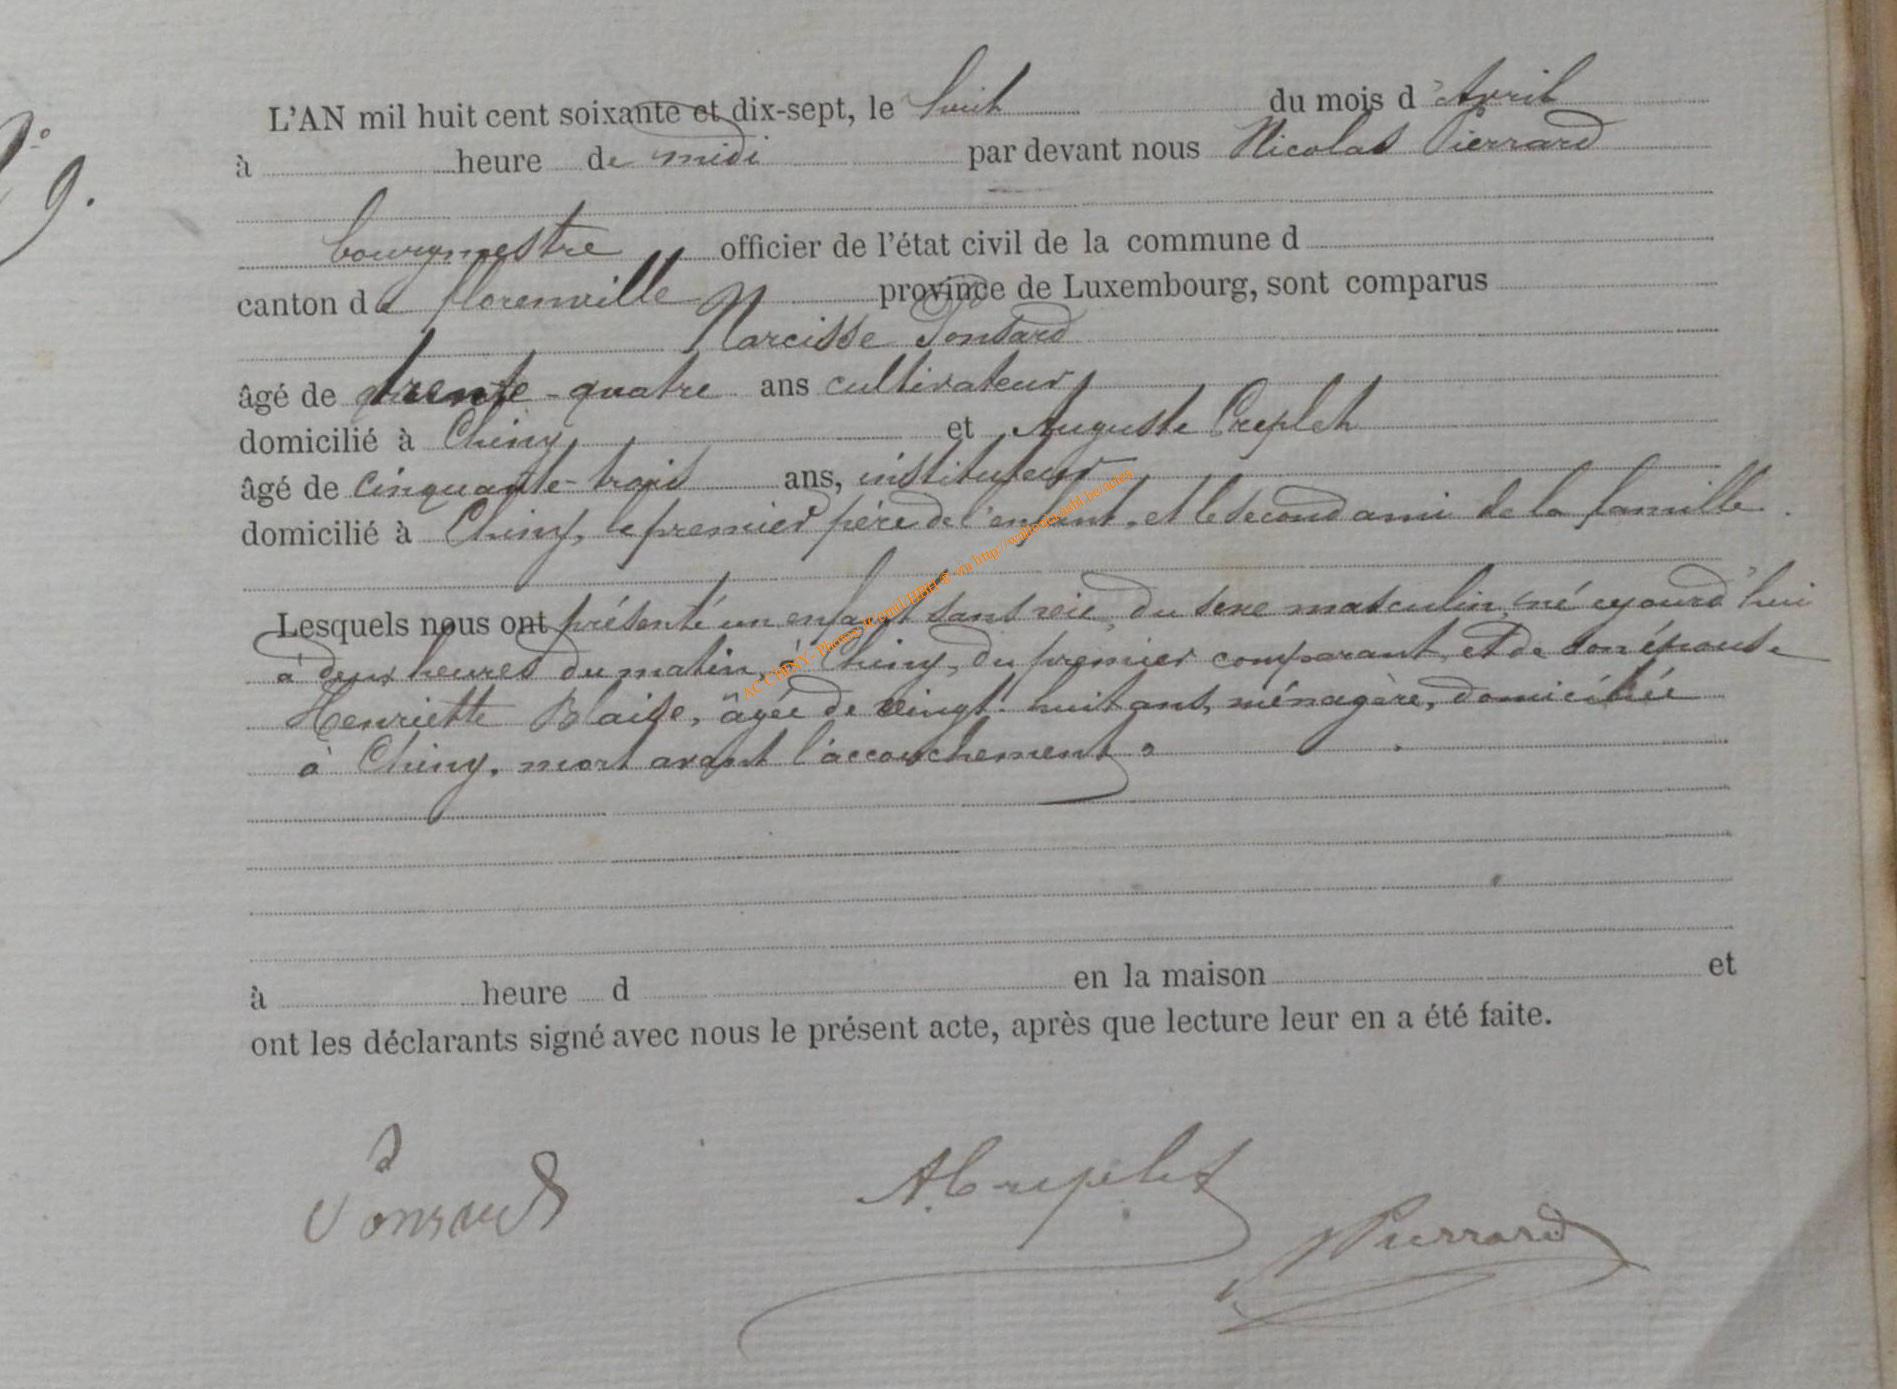 N° 9.
L'AN mil huit cent soixante et dix-sept, le huit du mois d'Avril
à heure de midi par devant nous Nicolas Pierrard
bourgmestre officier de l'état civil de la commune d
canton de florenville province de Luxembourg, sont comparus
Narcisse Ponsard
âgé de trente-quatre ans cultivateur
domicilié à Chiny et Auguste Creplet
âgé de cinquante-trois ans, instituteur
domicilié à Chiny, le premier père de l'enfant, et le second ami de la famille.
Lesquels nous ont présenté un enfant sans vie, du sexe masculin, né cejourd'hui
à deux heures du matin, à Chiny, du premier comparant, et de son épouse
Henriette Blaise, âgée de vingt-huit ans, ménagère, domiciliée
à Chiny, mort avant l'accouchement.
à heure d en la maison et
ont les déclarants signé avec nous le présent acte, après que lecture leur en a été faite.
Ponsard A. Creplet NPierrard